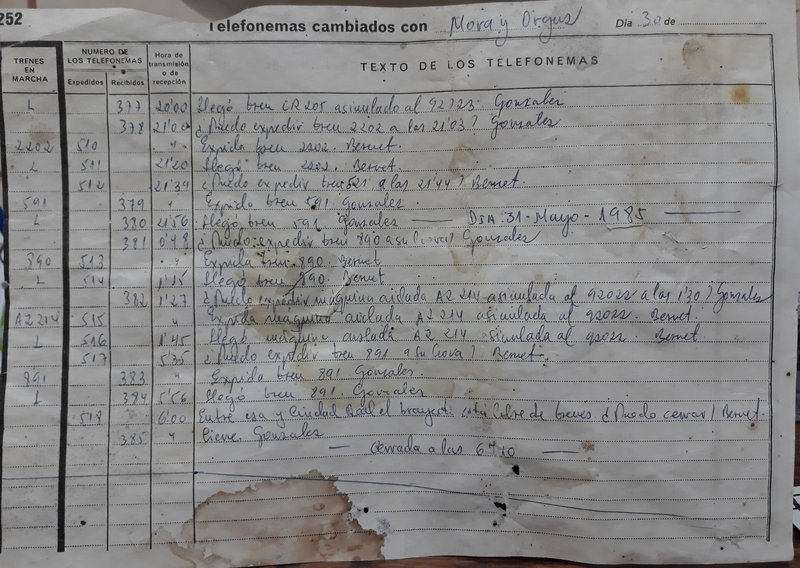 252
Telefonemas cambiados con Mora y Orgaz Dia 30 de
TRENES EN MARCHA
NUMERO DE LOS TELEFONEMAS
Expedidos Recibidos
Hora de transmisión o de recepción
TEXTO DE LOS TELEFONEMAS
L 377 20'00 Llegó tren CR205 asimulado al 92723. Gonzales
378 21'00 ¿Puedo expedir tren 2202 a las 21'03? Gonzales
2202 510 " Expida tren 2202. Bernet.
L 511 21'20 Llegó tren 2202. Bernet.
512 21'39 ¿Puedo expedir tren 591 a las 21'44? Bernet.
591 379 " Expida tren 591 Gonzales.
L 380 21'56 Llegó tren 591. Gonzales — DIA 31-Mayo-1985 —
381 0'48 ¿Puedo expedir tren 890 a su hora? Gonzales
890 513 " Expida tren 890. Bernet
L 514 1'15 Llegó tren 890. Bernet
382 1'27 ¿Puedo expedir máquina aislada A2214 asimulada al 92022 a las 1'30? Gonzales
A2214 515 " Expida máquina aislada A2214 asimulada al 92022. Bernet.
L 516 1'45 Llegó máquina aislada A2214 asimulada al 92022. Bernet
517 5'35 ¿Puedo expedir tren 891 a su hora? Bernet.
891 383 " Expida tren 891 Gonzales.
L 384 5'56 Llegó tren 891. Gonzales
518 6'00 Entre esa y Ciudad Real el trayecto esta libre de trenes ¿Puedo cerrar? Bernet.
385 " Cierre. Gonzales
— Cerrada a las 6'10 —